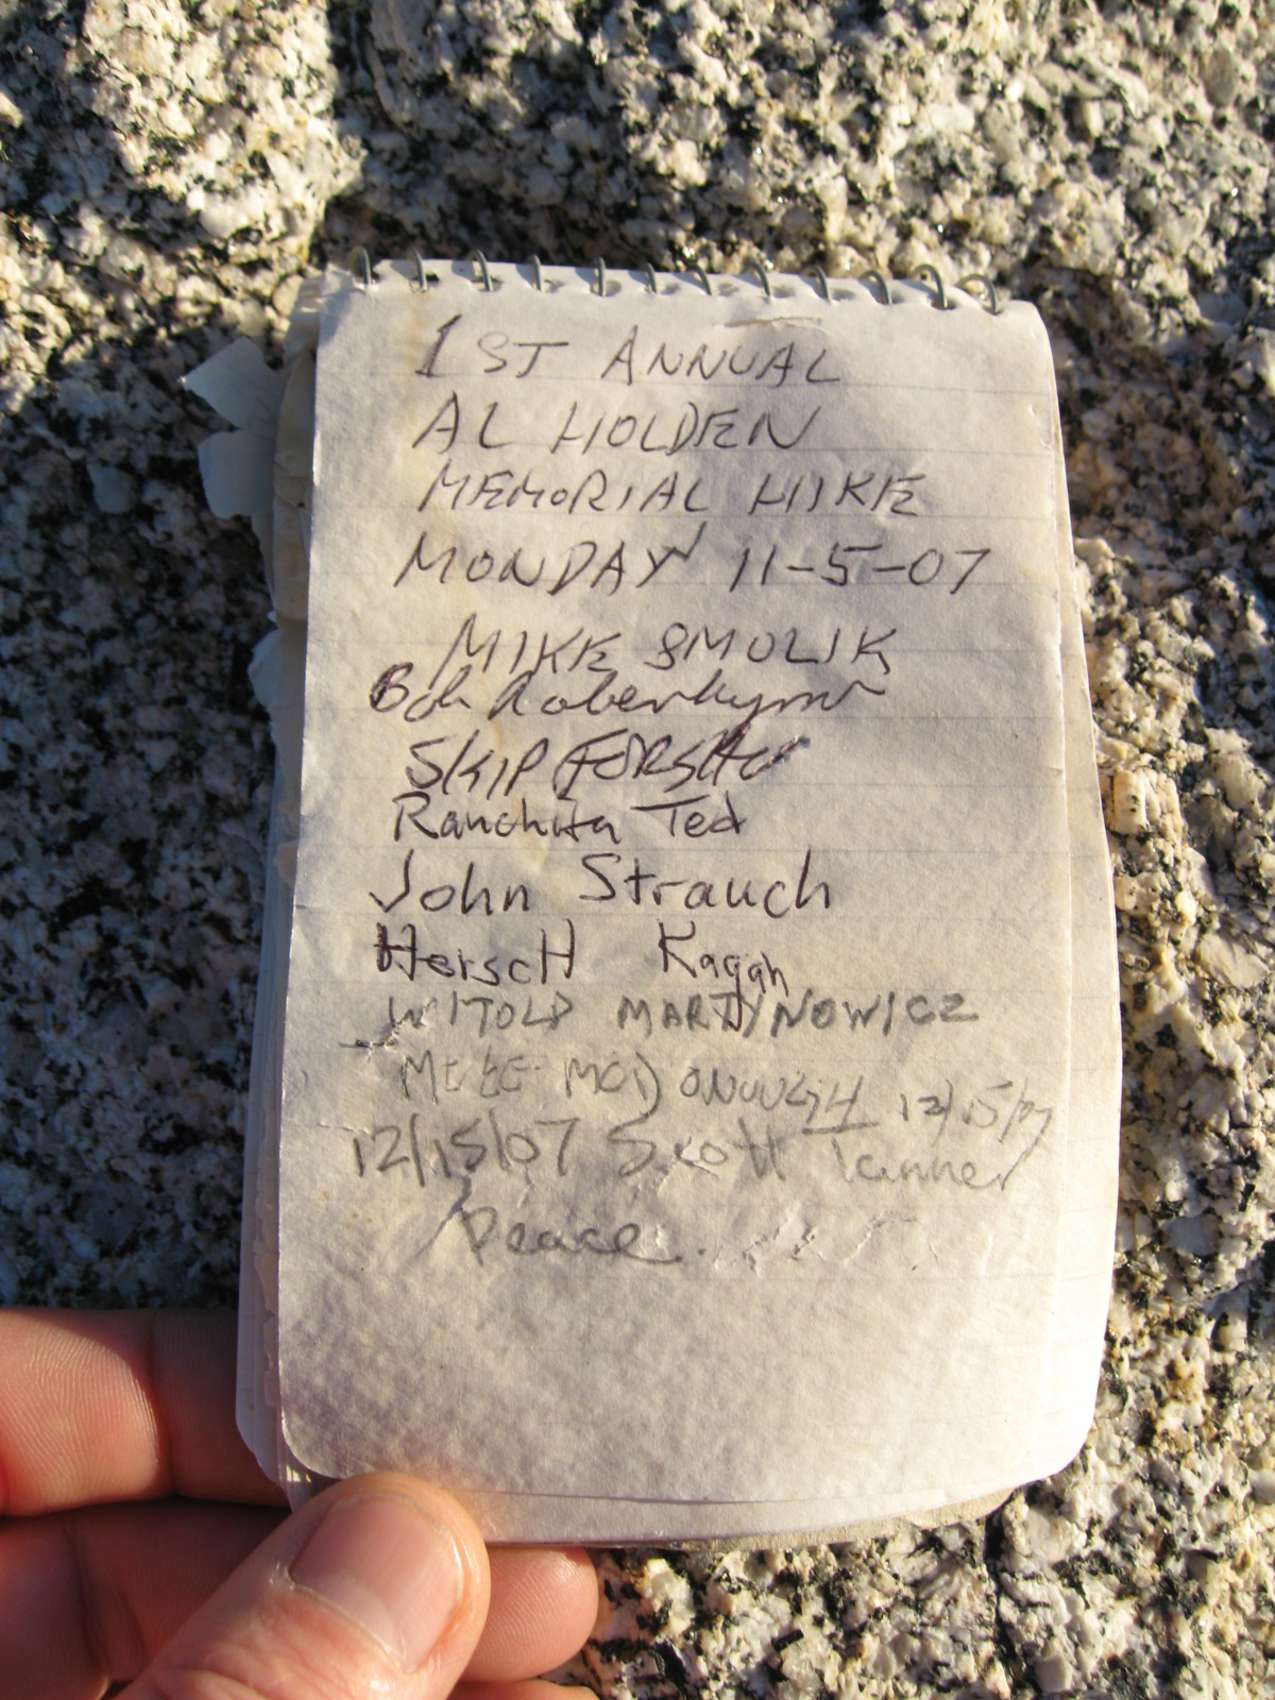 1ST ANNUAL
AL HOLDEN
MEMORIAL HIKE
MONDAY 11-5-07
MIKE SMOLIK
Bob
SKIP
Ranchita Ted
John Strauch
HerscH Kagan
WITOLD MARTYNOWICZ
12/15/07
12/15/07 Scott Tanner
Peace.